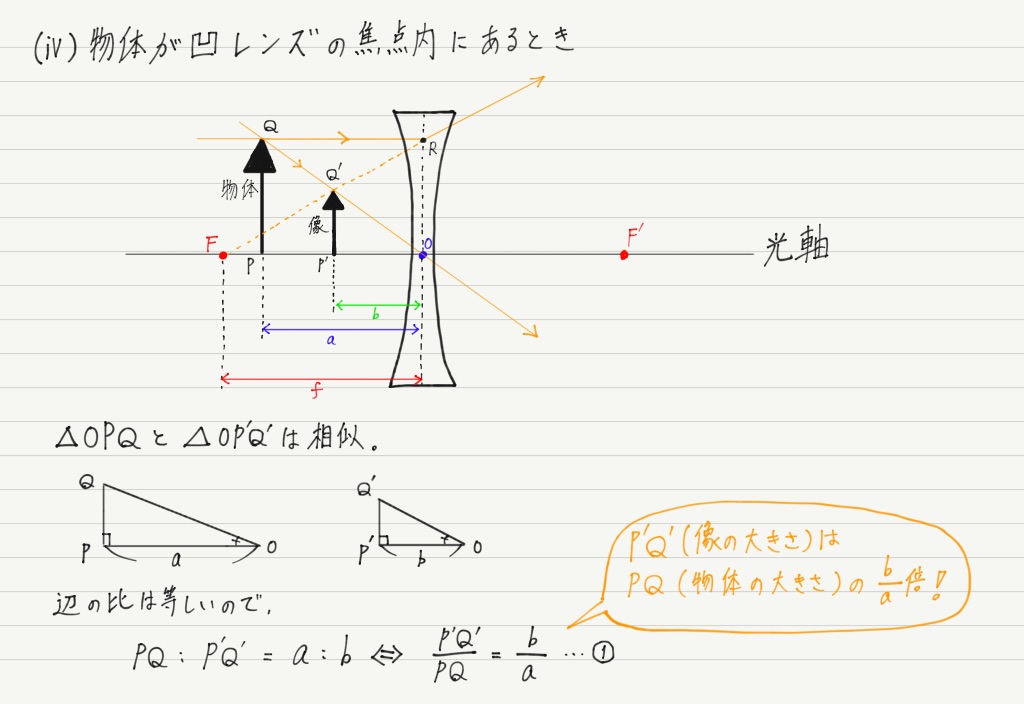 (iv) 物体が凹レンズの焦点内にあるとき
Q
R
Q'
物体
像
F
P
P'
O
F'
光軸
b
a
f
△OPQと△OP'Q'は相似。
Q
P
a
O
Q'
P'
b
O
P'Q'(像の大きさ)は
PQ(物体の大きさ)の b/a 倍!
辺の比は等しいので,
PQ : P'Q' = a : b ⇔ P'Q'/PQ = b/a …①